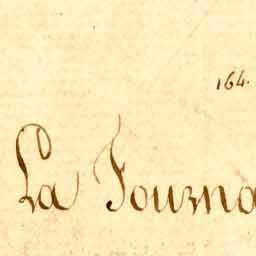 164.
La Fourna